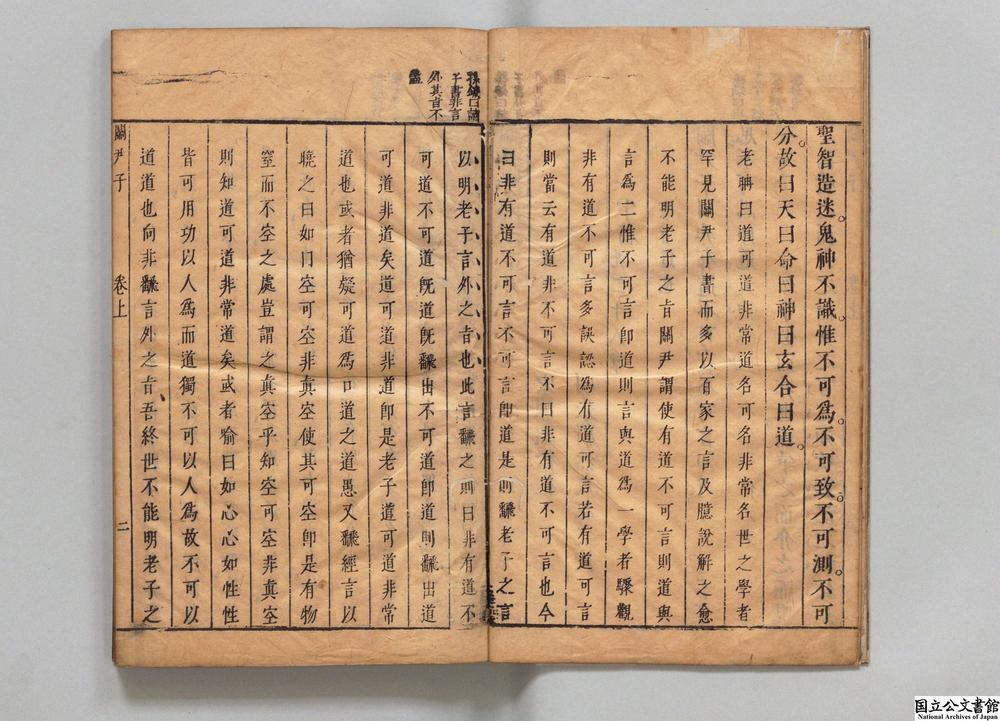 聖智造迷鬼神不識惟不可為不可致不可測不可
分故曰天曰命曰神曰玄合曰道
老聃曰道可道非常道名可名非常名世之學者
罕見關尹子書而多以百家之言及臆說解之愈
不能明老子之旨關尹謂使有道不可言則道與
言為二惟不可言卽道則言與道為一學者驟觀
非有道不可言多誤認為有道可言若有道可言
則當云有道非不可言不曰非有道不可言也今
曰非有道不可言不可言卽道是則飜老子之言
孫鑛曰諸
子書非言
外其旨不
以明老子言外之旨也此言飜之則曰非有道不
可道不可道既道既飜出不可道卽道則飜出道
可道非道矣道可道非道卽是老子道可道非常
道也或者猶疑可道為口道之道愚又飜經言以
曉之曰如曰空可空非真空使其可空卽是有物
窒而不空之處豈謂之真空乎知空可空非真空
則知道可道非常道矣或者喻曰如心心如性性
皆可用功以人為而道獨不可以人為故不可以
道道也向非飜言外之旨吾終世不能明老子之
關尹子
卷上
二
国立公文書館
National Archives of Japan